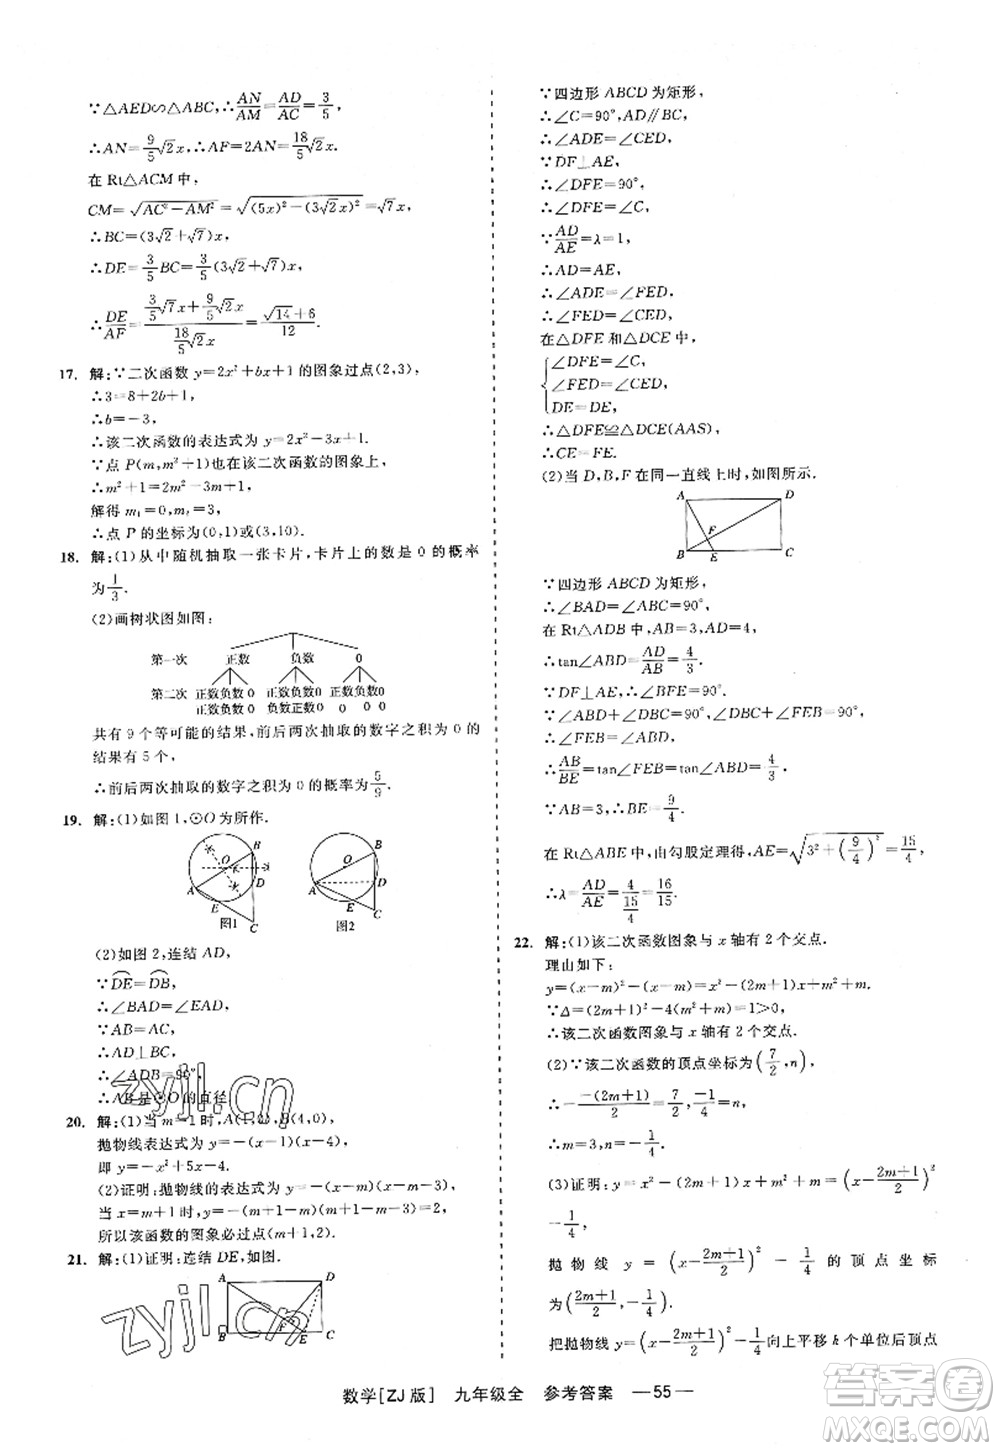 ∵△AED∽△ABC,∴AN/AM=AD/AC=3/5,
∴AN=9/5√2x,∴AF=2AN=18/5√2x.
在 Rt△ACM 中,
CM=√(AC²-AM²)=√((5x)²-(3√2x)²)=√7x,
∴BC=(3√2+√7)x,
∴DE=3/5BC=3/5(3√2+√7)x,
∴DE/AF=(3/5√7x+9/5√2x)/(18/5√2x)=(√14+6)/12.
17. 解:∵二次函数 y=2x²+bx+1的图象过点(2,3),
∴3=8+2b+1,
∴b=-3,
∴该二次函数的表达式为 y=2x²-3x+1.
∵点 P(m,m²+1)也在该二次函数的图象上,
∴m²+1=2m²-3m+1,
解得 m₁=0,m₂=3,
∴点 P 的坐标为(0,1)或(3,10).
18. 解:(1)从中随机抽取一张卡片,卡片上的数是 0 的概率
为1/3.
(2)画树状图如图:
第一次 正数 负数 0
第二次 正数负数 0 正数负数0 正数负数 0
正数负数 0 负数正数0 0 0 0
共有 9 个等可能的结果,前后两次抽取的数字之积为 0 的
结果有 5 个,
∴前后两次抽取的数字之积为 0 的概率为5/9.
19. 解:(1)如图 1,⊙O 为所作.
B
O
A
D
E
C
图1
B
O
A
D
E
C
图2
(2)如图 2,连结 AD,
∵DE=DB,
∴∠BAD=∠EAD,
∵AB=AC,
∴AD⊥BC,
∴∠ADB=90°,
∴AB 是⊙O 的直径.
20. 解:(1)当 m=1时,A(1,0),B(4,0),
抛物线表达式为 y=-(x-1)(x-4),
即 y=-x²+5x-4.
(2)证明:抛物线 y=-(x-m)(x-m-3),
当 x=m+1时,y=-(m+1-m)(m+1-m-3)=2,
所以该函数的图象必过点(m+1,2).
21. 解:(1)证明:连结 DE,如图.
A D
F
B E C
∵四边形 ABCD 为矩形,
∴∠C=90°,AD∥BC,
∴∠ADE=∠CED,
∵DF⊥AE,
∴∠DFE=90°,
∴∠DFE=∠C,
∵AD/AE=λ=1,
∴AD=AE,
∴∠ADE=∠FED.
∴∠FED=∠CED,
在△DFE 和△DCE 中,
∠DFE=∠C,
∠FED=∠CED,
DE=DE,
∴△DFE≌△DCE(AAS),
∴CE=FE.
(2)当 D,B,F 在同一直线上时,如图所示.
A D
F
B E C
∵四边形 ABCD 为矩形,
∴∠BAD=∠ABC=90°,
在 Rt△ADB 中,AB=3,AD=4,
∴tan∠ABD=AD/AB=4/3,
∵DF⊥AE,∴∠BFE=90°,
∴∠ABD+∠DBC=∠DBC+∠FEB=90°,
∴∠FEB=∠ABD,
∴AB/BE=tan∠FEB=tan∠ABD=4/3,
∵AB=3,∴BE=9/4,
在 Rt△ABE 中,由勾股定理得,AE=√(3²+(9/4)²)=15/4,
∴λ=AD/AE=4/(15/4)=16/15.
22. 解:(1)该二次函数图象与 x 轴有 2 个交点.
理由如下:
y=(x-m)²-(x-m)=x²-(2m+1)x+m²+m,
∵Δ=(2m+1)²-4(m²+m)=1>0,
∴该二次函数图象与 x 轴有 2 个交点.
(2)∵该二次函数的顶点坐标为(7/2,n),
∴-(-(2m+1))/2=7/2,(-1)/4=n,
∴m=3,n=-1/4.
(3)证明:y=x²-(2m+1)x+m²+m=(x-(2m+1)/2)²
-1/4,
抛物线 y=(x-(2m+1)/2)²-1/4 的顶点坐标
为((2m+1)/2,-1/4),
把抛物线 y=(x-(2m+1)/2)²-1/4向上平移 k 个单位后顶点
数学[ZJ 版] 九年级全 参考答案 —55—
zyjl.cn
zyjl.cn
答案圈
MXQE.COM